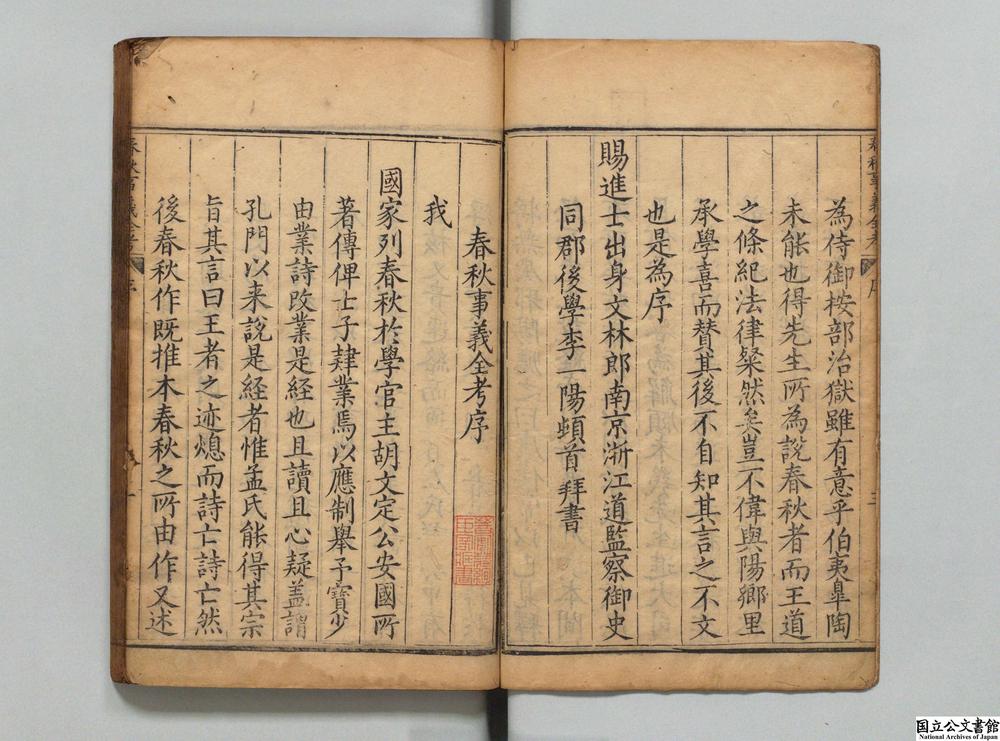 為侍御桉部治獄雖有意乎伯夷臯陶
未能也得先生所為說春秋者而王道
之條紀法律粲然矣豈不偉與陽鄉里
承學喜而賛其後不自知其言之不文
也是為序
賜進士出身文林郎南京浙江道監察御史
同郡後學李一陽頓首拜書
春秋事義全考序
我
國家列春秋於學官主胡文定公安國所
著傳俾士子肄業焉以應制舉予寶少
由業詩改業是經也且讀且心疑盖謂
孔門以来說是経者惟孟氏能得其宗
旨其言曰王者之迹熄而詩亡詩亡然
後春秋作既推本春秋之所由作又述
春秋事義全考 序
国立公文書館
National Archives of Japan